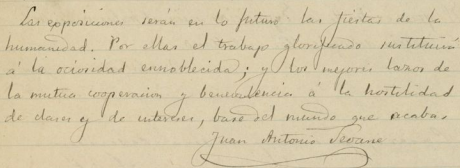 Las exposiciones serán en lo futuro las fiestas de la
humanidad. Por ellas el trabajo glorificado sustituirá
á la ociosidad ennoblecida; y los mejores lazos de
la mutua cooperacion y benevolencia á la hostilidad
de clases y de intereses, base del mundo que acaba.
Juan Antonio Seoane